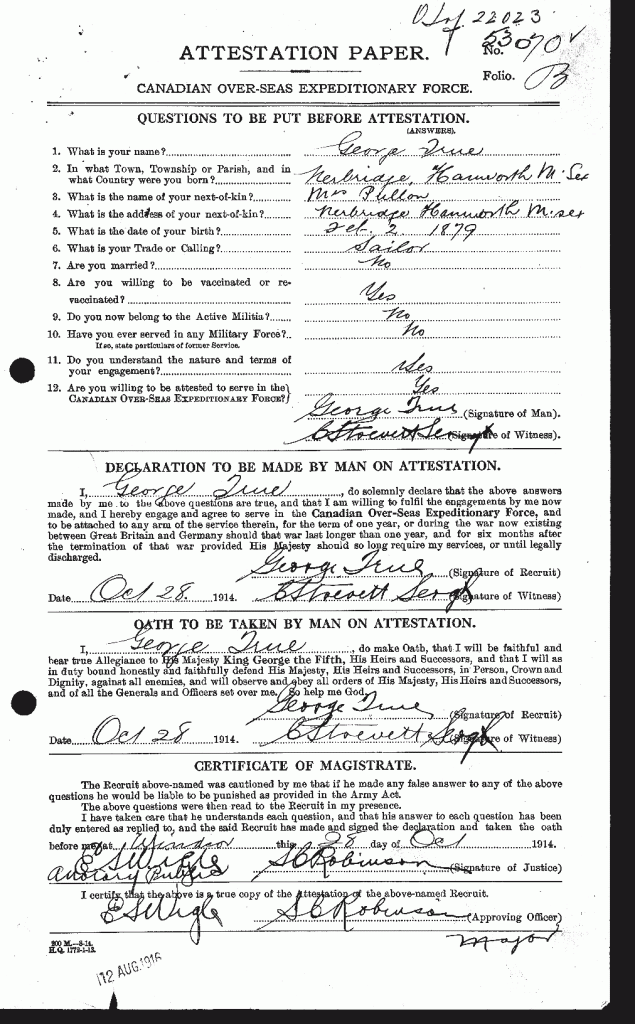 22023
53070
ATTESTATION PAPER.
No.
Folio.
B
CANADIAN OVER-SEAS EXPEDITIONARY FORCE.
QUESTIONS TO BE PUT BEFORE ATTESTATION.
(ANSWERS).
1. What is your name? George True
2. In what Town, Township or Parish, and in
what Country were you born? Nerbridge, Hanworth M'Sex
3. What is the name of your next-of-kin? Mrs Pullon
4. What is the address of your next-of-kin? Nerbridge Hanworth M'sex
5. What is the date of your birth? Feb. 2 1879
6. What is your Trade or Calling? Sailor
7. Are you married? No
8. Are you willing to be vaccinated or re-
vaccinated? Yes
9. Do you now belong to the Active Militia? No
10. Have you ever served in any Military Force? No
If so, state particulars of former Service.
11. Do you understand the nature and terms of
your engagement? Yes
12. Are you willing to be attested to serve in the
CANADIAN OVER-SEAS EXPEDITIONARY FORCE? Yes
George True (Signature of Man).
(Signature of Witness).
DECLARATION TO BE MADE BY MAN ON ATTESTATION.
I, George True, do solemnly declare that the above answers
made by me to the above questions are true, and that I am willing to fulfil the engagements by me now
made, and I hereby engage and agree to serve in the Canadian Over-Seas Expeditionary Force, and
to be attached to any arm of the service therein, for the term of one year, or during the war now existing
between Great Britain and Germany should that war last longer than one year, and for six months after
the termination of that war provided His Majesty should so long require my services, or until legally
discharged.
George True (Signature of Recruit)
Date Oct 28 1914. (Signature of Witness)
OATH TO BE TAKEN BY MAN ON ATTESTATION.
I, George True, do make Oath, that I will be faithful and
bear true Allegiance to His Majesty King George the Fifth, His Heirs and Successors, and that I will as
in duty bound honestly and faithfully defend His Majesty, His Heirs and Successors, in Person, Crown and
Dignity, against all enemies, and will observe and obey all orders of His Majesty, His Heirs and Successors,
and of all the Generals and Officers set over me. So help me God.
George True (Signature of Recruit)
Date Oct 28 1914. (Signature of Witness)
CERTIFICATE OF MAGISTRATE.
The Recruit above-named was cautioned by me that if he made any false answer to any of the above
questions he would be liable to be punished as provided in the Army Act.
The above questions were then read to the Recruit in my presence.
I have taken care that he understands each question, and that his answer to each question has been
duly entered as replied to, and the said Recruit has made and signed the declaration and taken the oath
before me, at Windsor this 28 day of Oct 1914.
E S Wigle S C Robinson (Signature of Justice)
a Notary Public
I certify that the above is a true copy of the Attestation of the above-named Recruit.
E S Wigle S C Robinson (Approving Officer)
Major
200 M.—8-14.
H.Q. 1772-1-13.
12 AUG. 1916